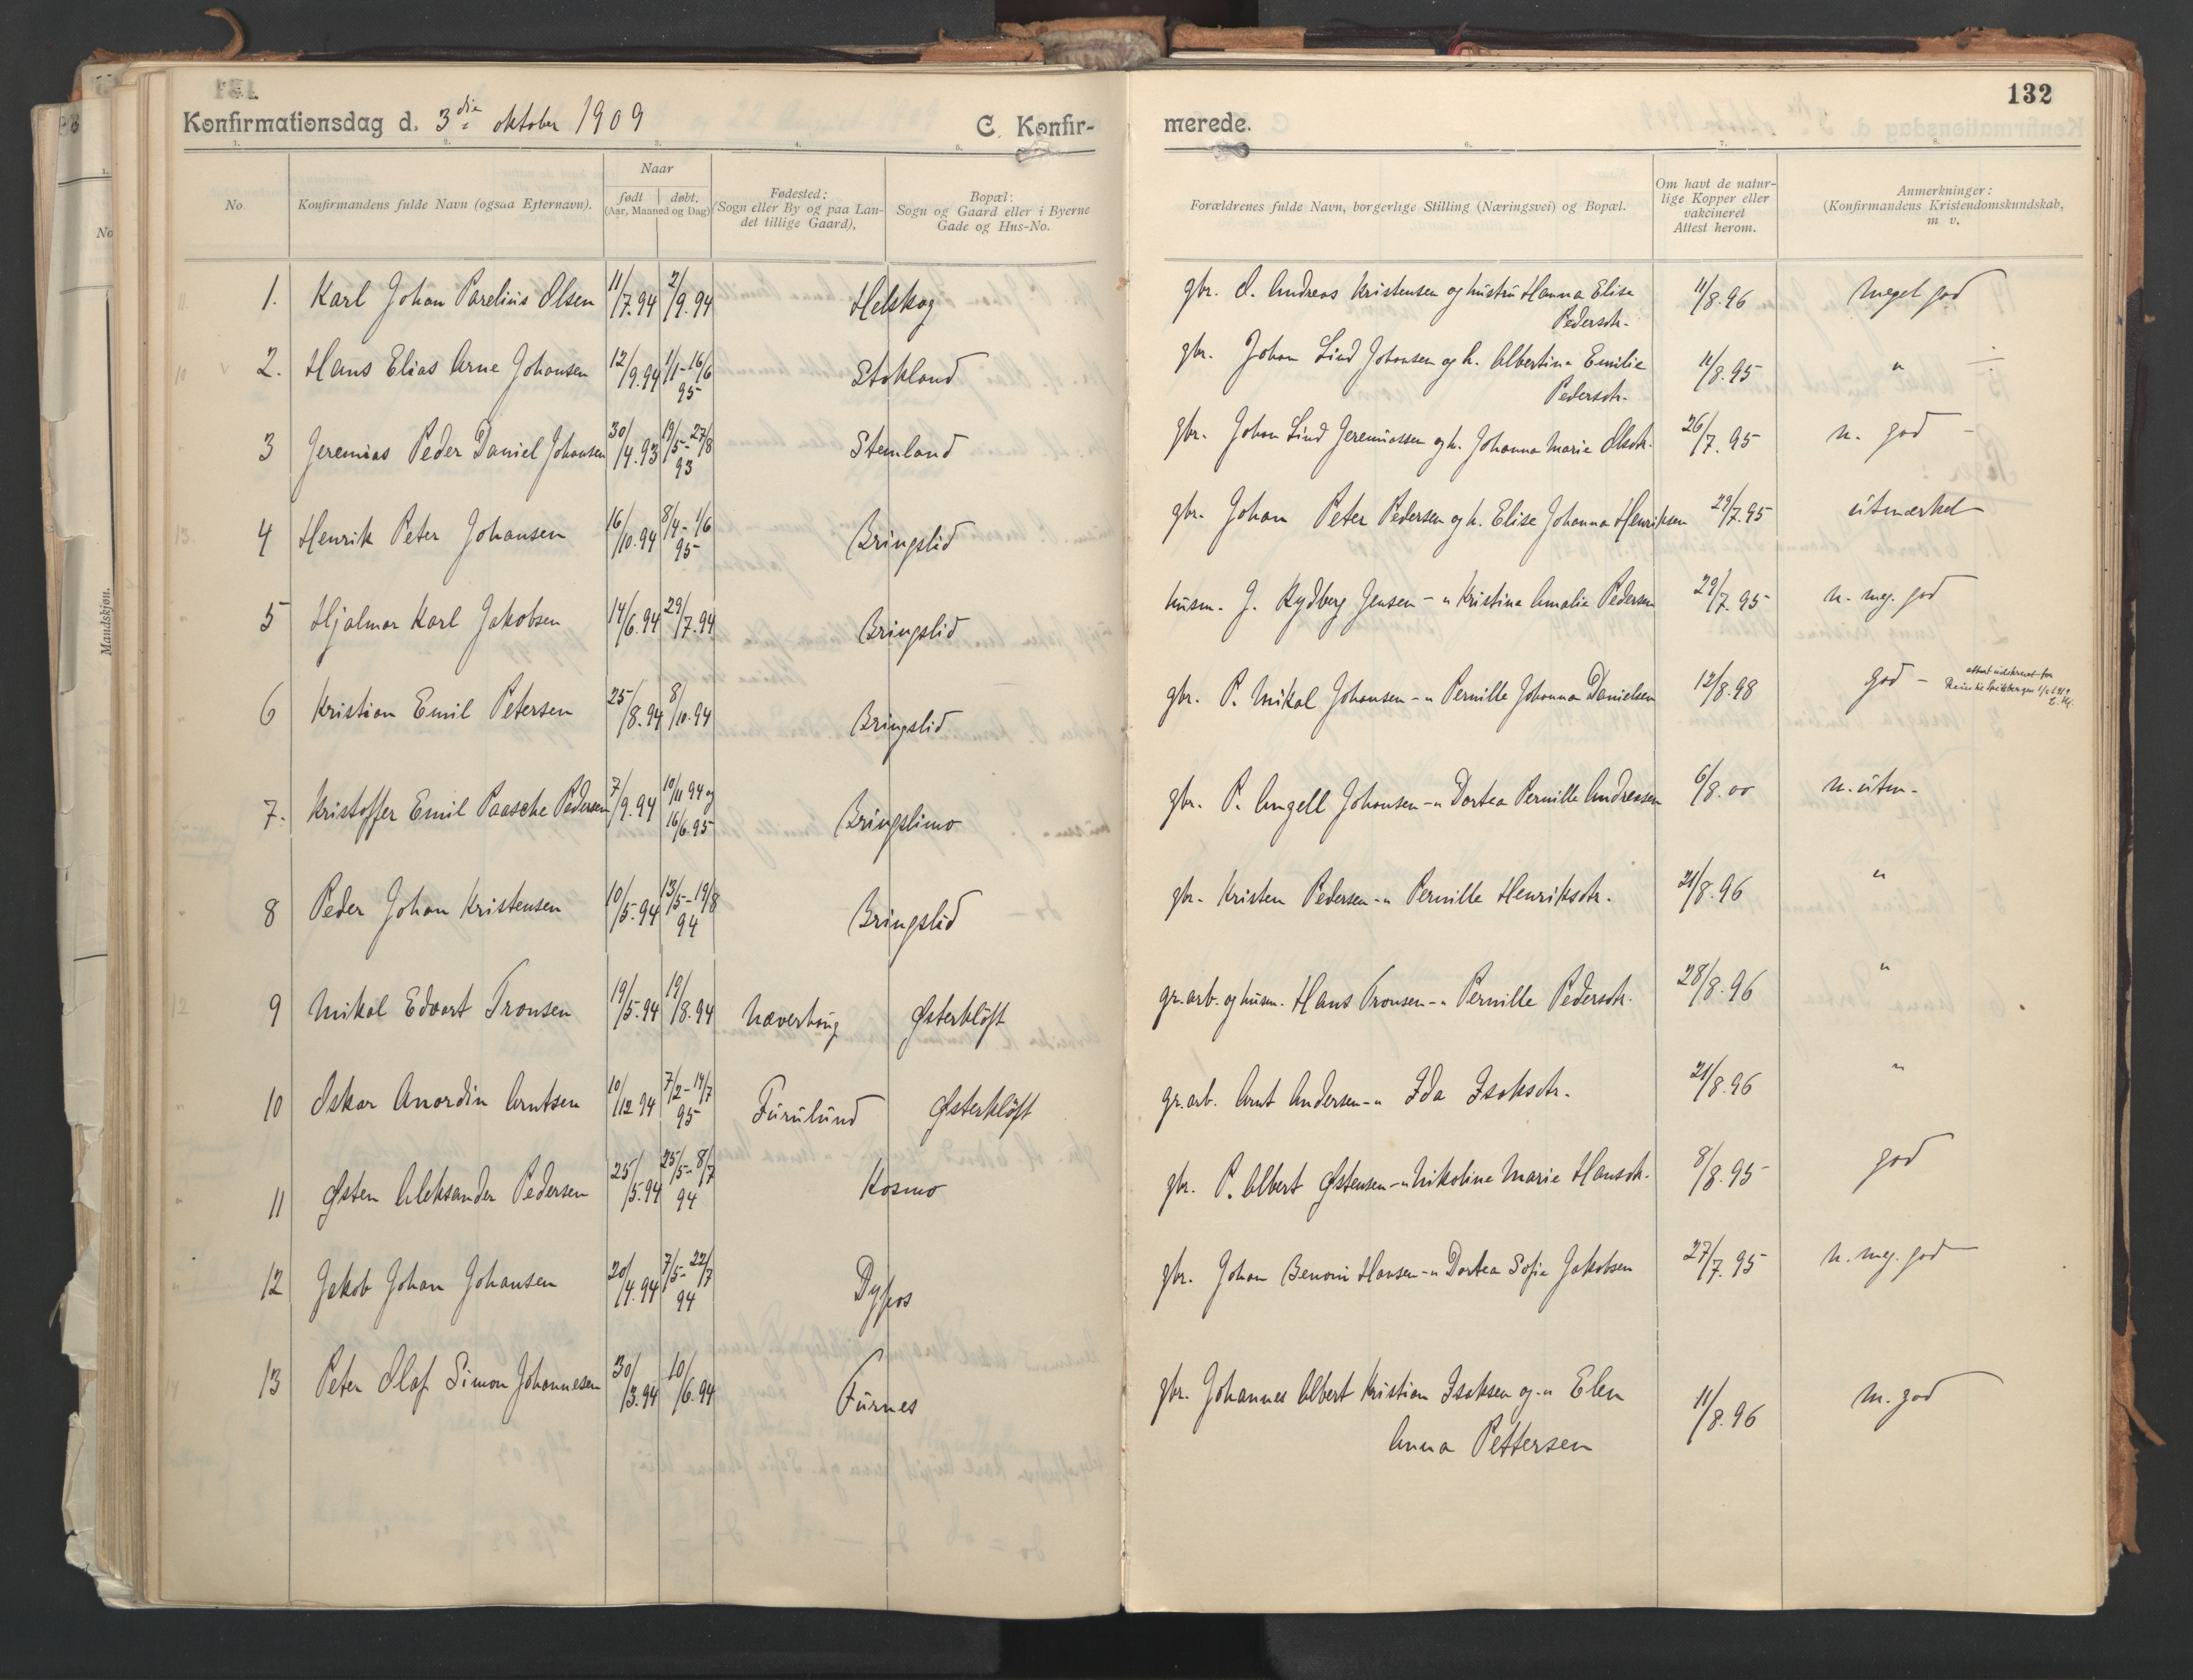 132
Konfirmationsdag d. 3die oktober 1909
C. Konfir-
merede.
1. 2. 3. 4. 5. 6. 7. 8.
No.
Konfirmandens fulde Navn (ogsaa Efternavn).
Naar
født | døbt.
(Aar, Maaned og Dag)
Fødested:
(Sogn eller By og paa Lan-
det tillige Gaard),
Bopæl:
Sogn og Gaard eller i Byerne
Gade og Hus-No.
Forældrenes fulde Navn, borgerlige Stilling (Næringsvei) og Bopæl.
Om havt de natur-
lige Kopper eller
vakcineret
Attest herom.
Anmerkninger:
(Konfirmandens Kristendomskundskab,
m v.
No
Mandskjøn.
1. Karl Johan Parelius Olsen 11/7.94 2/9.94 Helskog gbr. O. Andreas Kristensen og hustru Hanna Elise 11/8.96 Meget god
Pedersdtr.
2. Hans Elias Arne Johansen 12/9.94 1/1-16/6 95 Stokland gbr. Johan Lind Johansen og h. Albertina Emilie 11/8.95 "
Pedersdtr.
3 Jeremias Peder Daniel Johansen 30/4.93 19/5-27/8 93 Stemland gbr. Johan Lind Jeremiassen og h. Johanna Marie Olsdtr. 26/7.95 n. god
4 Henrik Peter Johansen 16/10.94 8/4-1/6 95 Bringslid gbr. Johan Peter Pedersen og h. Elise Johanna Henriksen 29/7.95 utmærket
5 Hjalmar Karl Jakobsen 14/6.94 29/7.94 Bringslid husm. J. Rydberg Jensen - " Kristine Amalie Pedersen 29/7.95 n. meg. god
6 Kristian Emil Petersen 25/8.94 8/10.94 Bringslid gbr. P. Mikal Johansen - " Pernille Johanna Danielsen 12/8.98 god -
7. Kristoffer Emil Paasche Pedersen 7/9.94 10/11 94 og 16/6.95 Bringslimo gbr. P. Angell Johansen - " Dortea Pernille Andreasen 6/8.00 n. utm.
8 Peder Johan Kristensen 10/5.94 13/5-19/8 94 Bringslid gbr. Kristen Pedersen - " Pernille Henriksdtr. 21/8.96 "
9 Mikal Edvart Tronsen 19/5.94 19/8.94 Næverhaug Østerkløft gr.arb. og husm. Hans Tronsen - " Pernille Pedersdtr. 28/8.96 "
10 Oskar Anordin Arntsen 10/12 94 7/2-14/7 95 Furulund Østerkløft gr.arb. Arnt Andersen - " Ida Isaksdtr. 21/8.96 "
11 Østen Aleksander Pedersen 25/5.94 25/5-8/7 94 Kosmo gbr. P. Albert Østensen - " Nikoline Marie Hansdtr. 8/8.95 god
12 Jakob Johan Johansen 20/4.94 7/5-22/7 94 Dyfos gbr. Johan Benoni Hansen - " Dortea Sofie Jakobsen 27/7.95 n. meg. god
13 Peter Olaf Simon Johannesen 30/3.94 10/6.94 Furnes gbr. Johannes Albert Kristian Isaksen og - " Elen 11/8.96 m. god
Anna Pettersen